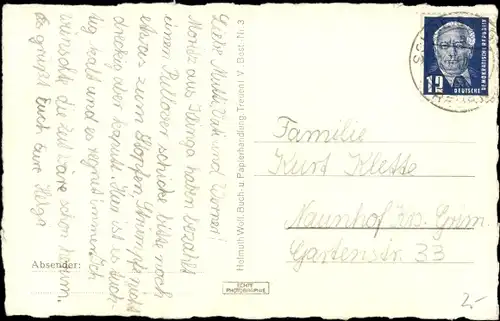 Liebe Mutti, Vati und Werner!
Moritz aus haben bezahlt
einen Pullover schicke bitte noch
etwas zum Stopfen, Strümpfe nicht
dreckig aber kaputt. Hier ist es auch
kalt und es regnet immer. Ich
wünschte die Zeit wäre schon herum.
Es grüßt Euch Eure Helga
Absender:
Helmuth Wolf, Buch- u. Papierhandlung, Treseni. V. Best. Nr. 3
ECHTE
PHOTOGRAPHIE
12
DEUTSCHE
DEMOKRATISCHE REPUBLIK
Familie
Kurt Klette
Naunhof Krs. Grim.
Gartenstr. 33
2,-